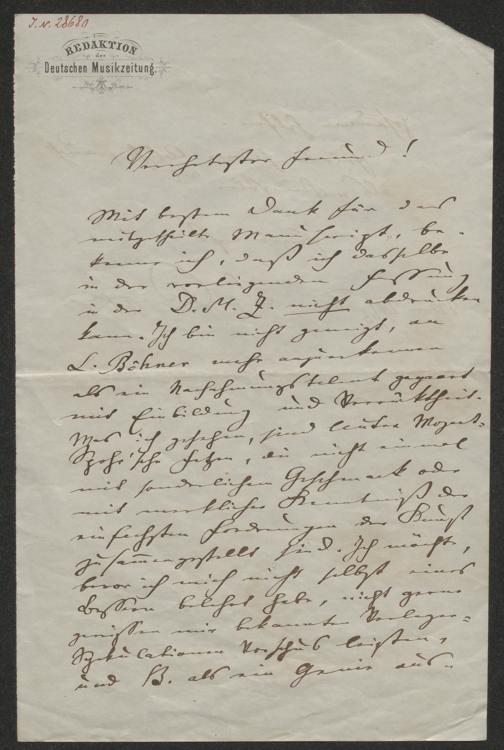 I.N. 28680
REDAKTION
der
Deutschen Musikzeitung.
Verehrtester Freund!
Mit bestem Dank für das
mitgetheilte Manuscript, be-
kenne ich, daß ich dasselbe
in der vorliegenden Fassung
in der D. M. Z. nicht abdrucken
kann. Ich bin nicht geneigt, an
L. Böhner mehr anzuerkennen
als ein Nachahmungstalent gepaart
mit Einbildung und Verrücktheit.
Was ich gesehen, sind lauter Mozart-
Spohr'sche Fetzen, die nicht einmal
mit sonderlichem Geschmack oder
mit merklicher Kenntniß der
einfachsten Forderungen der Kunst
zusammengestellt sind. Ich möchte,
bevor ich mich nicht selbst eines
Bessern belehrt habe, nicht gerne
gewissen mir bekannten Verleger-
Spekulationen Vorschub leisten,
und B. als ein Genie aus-